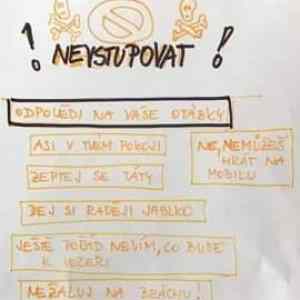 ! NEVSTUPOVAT !
ODPOVĚDI NA VAŠE OTÁZKY
ASI V TVÉM POKOJI
NE, NEMŮŽEŠ
HRÁT NA
MOBILU
ZEPTEJ SE TÁTY
DEJ SI RADĚJI JABLKO
JEŠTĚ POŘÁD NEVÍM, CO BUDE
K VEČEŘI
NEŽALUJ NA BRÁCHU!